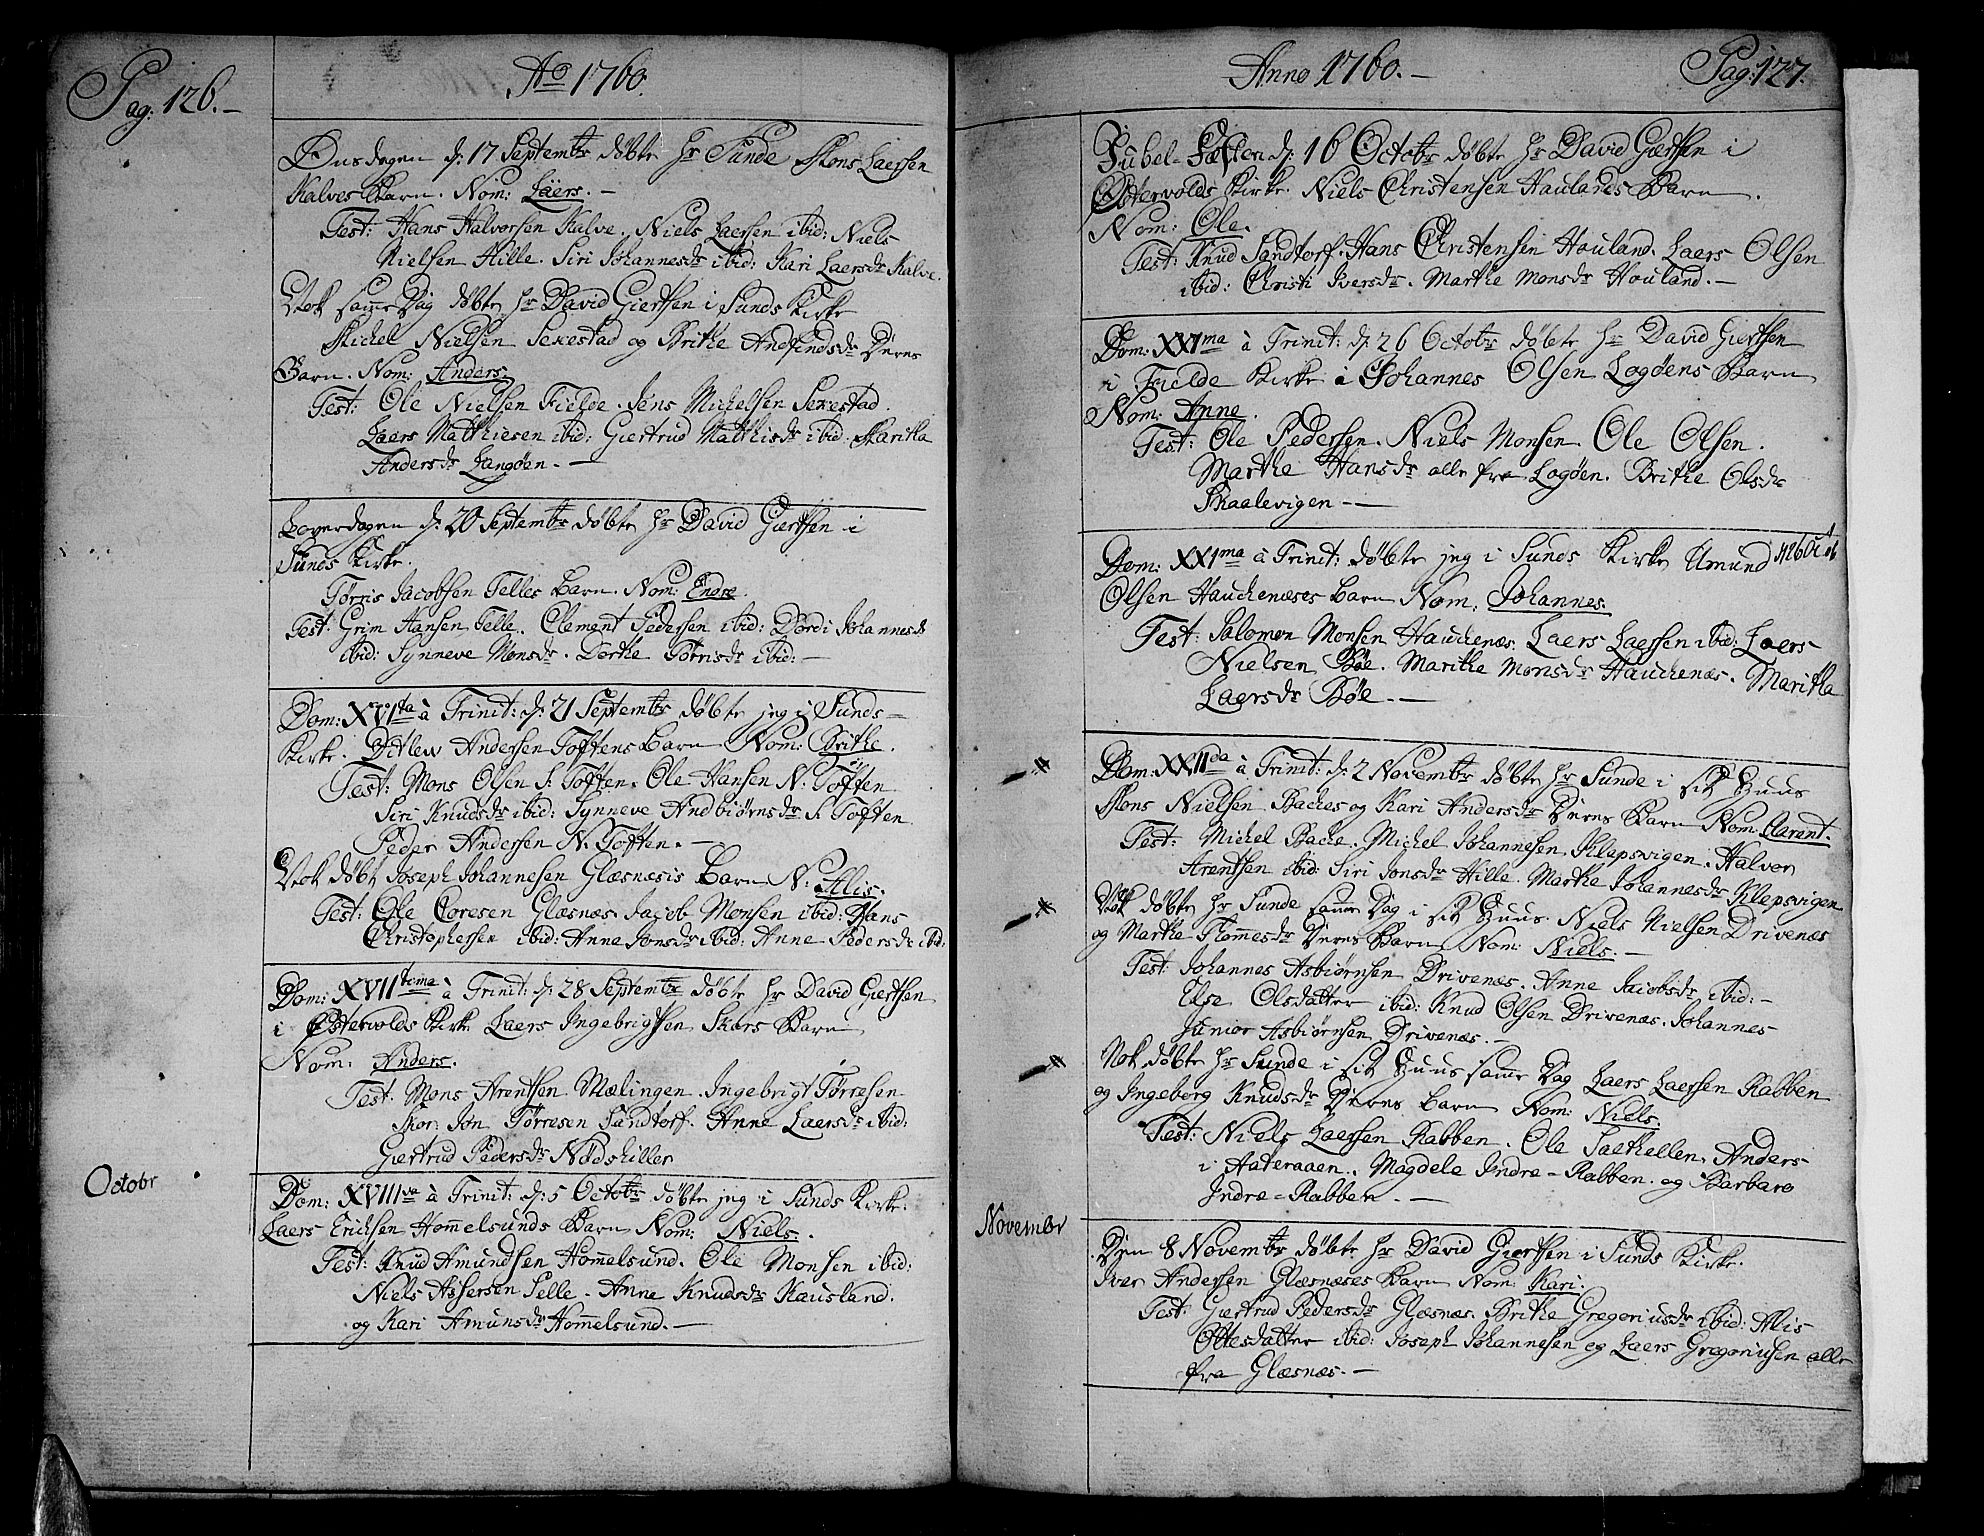 Pag: 126.-
Ao 1760.
Onsdagen d: 17 Septembr døbte Hr Sunde Mons Laersen
Kalves Barn. Nom: Laers.-
Test: Hans Halvorsen Kalve. Niels Laersen ibid: Niels
Nielsen Hille. Siri Johannesdr ibid: Kari Laersdr Kalve.
Nok samme Dag døbte Hr David Giertsen i Sunds Kirke
Michel Nielsen Sexestad og Brithe Andfindsdr Deres
Barn. Nom: Anders.
Test: Ole Nielsen Fielde. Jens Michelsen Sexestad.
Laers Matthiesen ibid: Giertrud Matthisdr ibid: Maritha
Andersdr Langøen.-
Løverdagen d: 20 Septembr døbte Hr David Giertsen i
Sunds Kirke.
Tørris Jacobsen Telles Barn. Nom: Endre.
Test: Grim Hansen Telle. Clement Pedersen ibid: Dordi Johannesdr
ibid: Synneve Monsdr. Dorthe Tørrisdr ibid:-
Dom: XVIta à Trinit: d: 21 Septembr døbte jeg i Sunds-
Kirke. Ditlew Andersen Toftens Barn Nom: Brithe.
Test: Mons Olsen S. Toften. Ole Hansen N. Toften
Siri Knudsdr ibid: Synneve Andbiørnsdr S. Toften
Peder Andersen N. Toften.-
Nok døbt Joseph Johannesen Glæsnæsis Barn N: Alis.
Test: Ole Coresen Glæsnæs. Jacob Monsen ibid: Hans
Christophersen ibid: Anne Jonsdr ibid: Anne Pedersdr ibid:
Dom: XVIItima à Trinit: d: 28 Septembr døbte Hr David Giertsen
i Østervolds Kirke Laers Ingebrigtsen Skars Barn
Nom: Anders.
Test: Mons Arentsen Mælingen. Ingebrigt Tørresen
Skor. Jon Tørresen Sandtorf. Anne Laersdr ibid:
Giertrud Pedersdr Nødshiller
Octobr
Dom: XVIIIva à Trinit: d: 5 Octobr døbte jeg i Sunds Kirke.
Laers Erichsen Hommelsunds Barn Nom: Niels.
Test: Knud Amundsen Hommelsund. Ole Monsen ibid:
Niels Assersen Selle. Anne Knudsdr Kausland.
og Kari Amunsdr Hommelsund.-
Anno 1760.-
Pag: 127.
Jubel-Festen d: 16 Octobr døbte Hr David Giertsen i
Østervolds Kirke. Niels Christensen Haulands Barn.
Nom: Ole.
Test: Knud Sandtorf. Hans Christensen Houland. Laers Olsen
ibid: Christi Iversdr. Marthe Monsdr Houland.-
Dom: XXIma à Trinit: d: 26 Octobr døbte Hr David Giertsen
i Fielde Kirke Johannes Olsen Logøens Barn
Nom: Anne.
Test: Ole Pedersen. Niels Monsen. Ole Olsen.
Marthe Hansdr alle fra Logøen. Brithe Olsdr
Skaalevigen-
Dom: XXIma à Trinit: døbte jeg i Sunds Kirke Umund
Olsen Hauchenæses Barn Nom: Johannes.
Test: Salomon Monsen Hauchenæs. Laers Laersen ibid: Laers
Nielsen Bøe. Marithe Monsdr Hauchenæs. Maritha
Laersdr Bøe.-
Dom: XXIIda à Trinit: d: 2 Novembr døbte Hr Sunde i sit Huus
Mons Nielsen Baches og Kari Andersdr Deres Barn Nom: Arent.
Test: Michel Bache. Michel Johannesen Klepsvigen. Halvor
Arentsen ibid: Siri Jonsdr Hille. Marthe Johannesdr Klepsvigen
Nok døbte Hr Sunde samme Dag i sit Huus. Niels Nielsen Drivenæs
og Marthe Thommesdr Deres Barn Nom: Niels.-
Test: Johannes Asbiørnsen Drivenæs. Anne Jacobsdr ibid:-
Else Olsdatter ibid: Knud Olsen Drivenæs. Johannes
Junior Asbiørnsen Drivenæs.-
Nok døbte Hr Sunde i sit Huus samme Dag Laers Laersen Rabben
og Ingeborg Knudsdr Deres Barn Nom: Niels.
Test: Niels Laersen Rabben. Ole Saethellen. Anders
i Aateraaen. Magdele Indre-Rabben. og Barbara
Indre-Rabben.-
Novembr
Den 8 Novembr døbte Hr David Giertsen i Sunds Kirke.
Iver Andersen Glæsnæses Barn Nom: Kari.
Test: Giertrud Pedersdr Glæsnæs. Brithe Gregoriusdr ibid: Alis
Ottesdatter ibid: Joseph Johannesen og Laers Gregoriusen alle
fra Glæsnæs.-